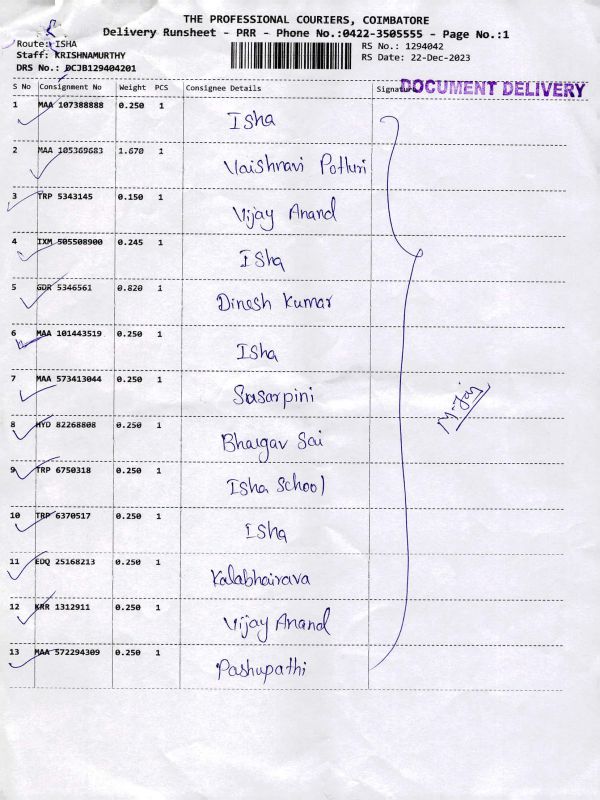 THE PROFESSIONAL COURIERS, COIMBATORE
Delivery Runsheet - PRR - Phone No.:0422-3505555 - Page No.:1
Route: ISHA
RS No.: 1294042
Staff: KRISHNAMURTHY
RS Date: 22-Dec-2023
DRS No.: DCJB129404201
S No Consignment No Weight PCS Consignee Details Signature DOCUMENT DELIVERY
1 MAA 107388888 0.250 1 Isha
2 MAA 105369683 1.670 1 Vaishnavi Potluri
3 TRP 5343145 0.150 1 Vijay Anand
4 IXM 505508900 0.245 1 Isha
5 GDR 5346561 0.820 1 Dinesh Kumar
6 MAA 101443519 0.250 1 Isha
7 MAA 573413044 0.250 1 Sasarpini
8 HYD 82268808 0.250 1 Bhargav Sai
9 TRP 6750318 0.250 1 Isha School
10 TRP 6370517 0.250 1 Isha
11 EDQ 25168213 0.250 1 Kalabhairava
12 KRR 1312911 0.250 1 Vijay Anand
13 MAA 572294309 0.250 1 Pashupathi